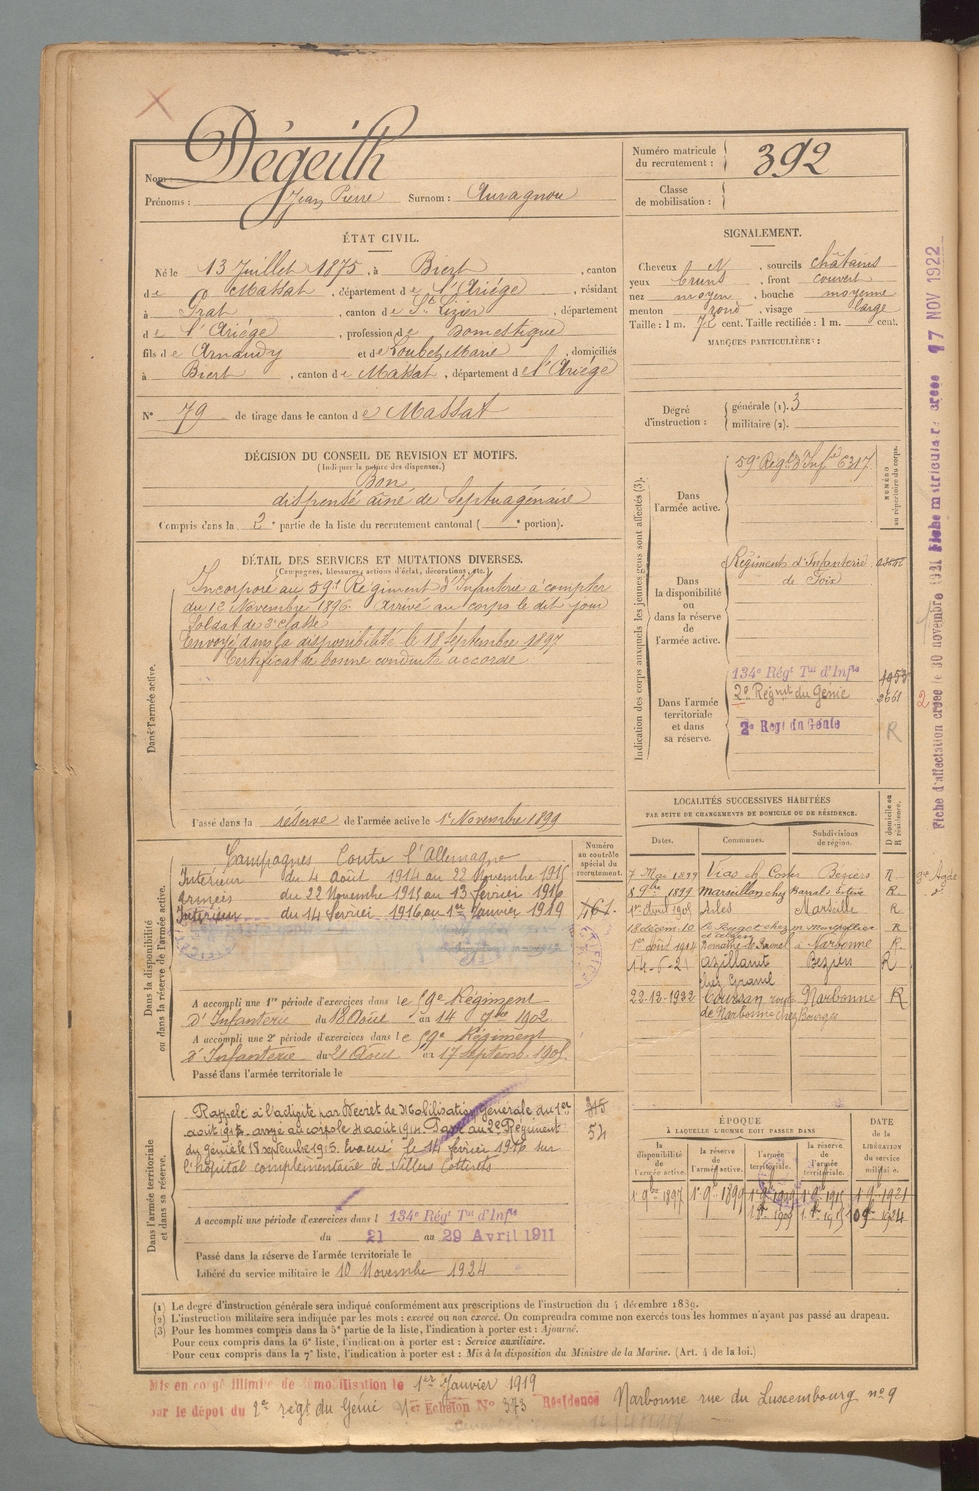 Dégeilh
Nom :
Prénoms : Jean Pierre Surnom : Auragnou
Numéro matricule du recrutement : 392
Classe de mobilisation :
ÉTAT CIVIL.
Né le 13 Juillet 1875, à Biert, canton
de Massat, département de l'Ariège, résidant
à Prat, canton de St Lizier, département
de l'Ariège, profession de Domestique
fils de Arnaudy et de Loubet Marie, domiciliés
à Biert, canton de Massat, département de l'Ariège
N° 79 de tirage dans le canton de Massat
SIGNALEMENT.
Cheveux N, sourcils châtains
yeux bruns, front couvert
nez moyen, bouche moyenne
menton rond, visage large
Taille : 1 m. 72 cent. Taille rectifiée : 1 m. cent.
MARQUES PARTICULIÈRES :
Degré d'instruction : générale (1). 3
militaire (2).
DÉCISION DU CONSEIL DE REVISION ET MOTIFS.
(Indiquer la nature des dispenses.)
Bon
dispensé ainé de Septuagénaire
Compris dans la 2e partie de la liste du recrutement cantonal ( e portion).
DÉTAIL DES SERVICES ET MUTATIONS DIVERSES.
(Campagnes, blessures, actions d'éclat, décorations, etc.)
Dans l'armée active.
Incorporé au 59e Régiment d'Infanterie à compter
du 12 Novembre 1896. arrivé au corps le dit jour
Soldat de 2e classe
Envoyé dans la disponibilité le 18 Septembre 1897
Certificat de bonne conduite accordé
Passé dans la réserve de l'armée active le 1er Novembre 1899
Indication des corps auxquels les jeunes gens sont affectés (3).
NUMÉRO au répertoire du corps.
Dans l'armée active.
59e Regt d'Infie 6317
Dans la disponibilité ou dans la réserve de l'armée active.
Régiments d'Infanterie
de Foix
Dans l'armée territoriale et dans sa réserve.
134e Régt Tal d'Infie 1953
2e Régnt du Génie 2661
2e Regt du Génie R
LOCALITÉS SUCCESSIVES HABITÉES
PAR SUITE DE CHANGEMENTS DE DOMICILE OU DE RÉSIDENCE.
Dates. Communes. Subdivisions de région. D domicile ou R résidence.
7 Mai 1899 Vias ch. Coste Béziers R
8 9bre 1899 Marseillan chez R
1er Avril 1905 Arles Marseille R
18 décem. 10 Montpellier R
1er août 1914 Narbonne R
14-5-21 Azillanet Beziers R
chez Granel
22-12-1922 Coursan route Narbonne R
de Narbonne chez Bourges
Dans la disponibilité ou dans la réserve de l'armée active.
Campagnes Contre l'Allemagne
Intérieur du 4 Août 1914 au 22 Novembre 1915
Armées du 22 Novembre 1915 au 13 Février 1916
Intérieur du 14 Février 1916 au 1er Janvier 1919
Numéro au contrôle spécial du recrutement.
461.
A accompli une 1re période d'exercices dans le 59e Régiment
d'Infanterie du 18 Août au 14 7bre 1902
A accompli une 2e période d'exercices dans le 59e Régiment
d'Infanterie du 21 Août au 17 Septemb. 1905
Passé dans l'armée territoriale le
Dans l'armée territoriale et dans sa réserve.
Rappelé à l'activité par Décret de Mobilisation Générale du 1er
août 1914. arrivé au corps le 4 août 1914. Passé au 2e Régiment
du génie le 18 septembre 1915. Evacué le 14 février 1916 sur
l'hôpital complémentaire de Villers Cotterêts
315
54
A accompli une période d'exercices dans l 134e Régt Tal d'Infie
du 21 au 29 Avril 1911
Passé dans la réserve de l'armée territoriale le
Libéré du service militaire le 10 Novembre 1924
ÉPOQUE
À LAQUELLE L'HOMME DOIT PASSER DANS
la disponibilité de l'armée active.
la réserve de l'armée active.
l'armée territoriale.
la réserve de l'armée territoriale.
DATE de la LIBÉRATION du service militaire.
1er 9bre 1897 1er 9bre 1899 1er 9bre 1909 1er 9bre 1915 1er 9bre 1921
1er 8bre 1909 1er 8bre 1915 10 9bre 1924
(1) Le degré d'instruction générale sera indiqué conformément aux prescriptions de l'instruction du 4 décembre 1889.
(2) L'instruction militaire sera indiquée par les mots : exercé ou non exercé. On comprendra comme non exercés tous les hommes n'ayant pas passé au drapeau.
(3) Pour les hommes compris dans la 5e partie de la liste, l'indication à porter est : Ajourné.
Pour ceux compris dans la 6e liste, l'indication à porter est : Service auxiliaire.
Pour ceux compris dans la 7e liste, l'indication à porter est : Mis à la disposition du Ministre de la Marine. (Art. 4 de la loi.)
Mis en congé illimité de démobilisation le 1er Janvier 1919
par le dépôt du 2e régt du Génie 1er Echelon N° 373 Résidence Narbonne rue du Luxembourg n° 9
Fiche d'affectation créée le 30 novembre 1921 Fiche matriculaire créée 17 NOV 1922